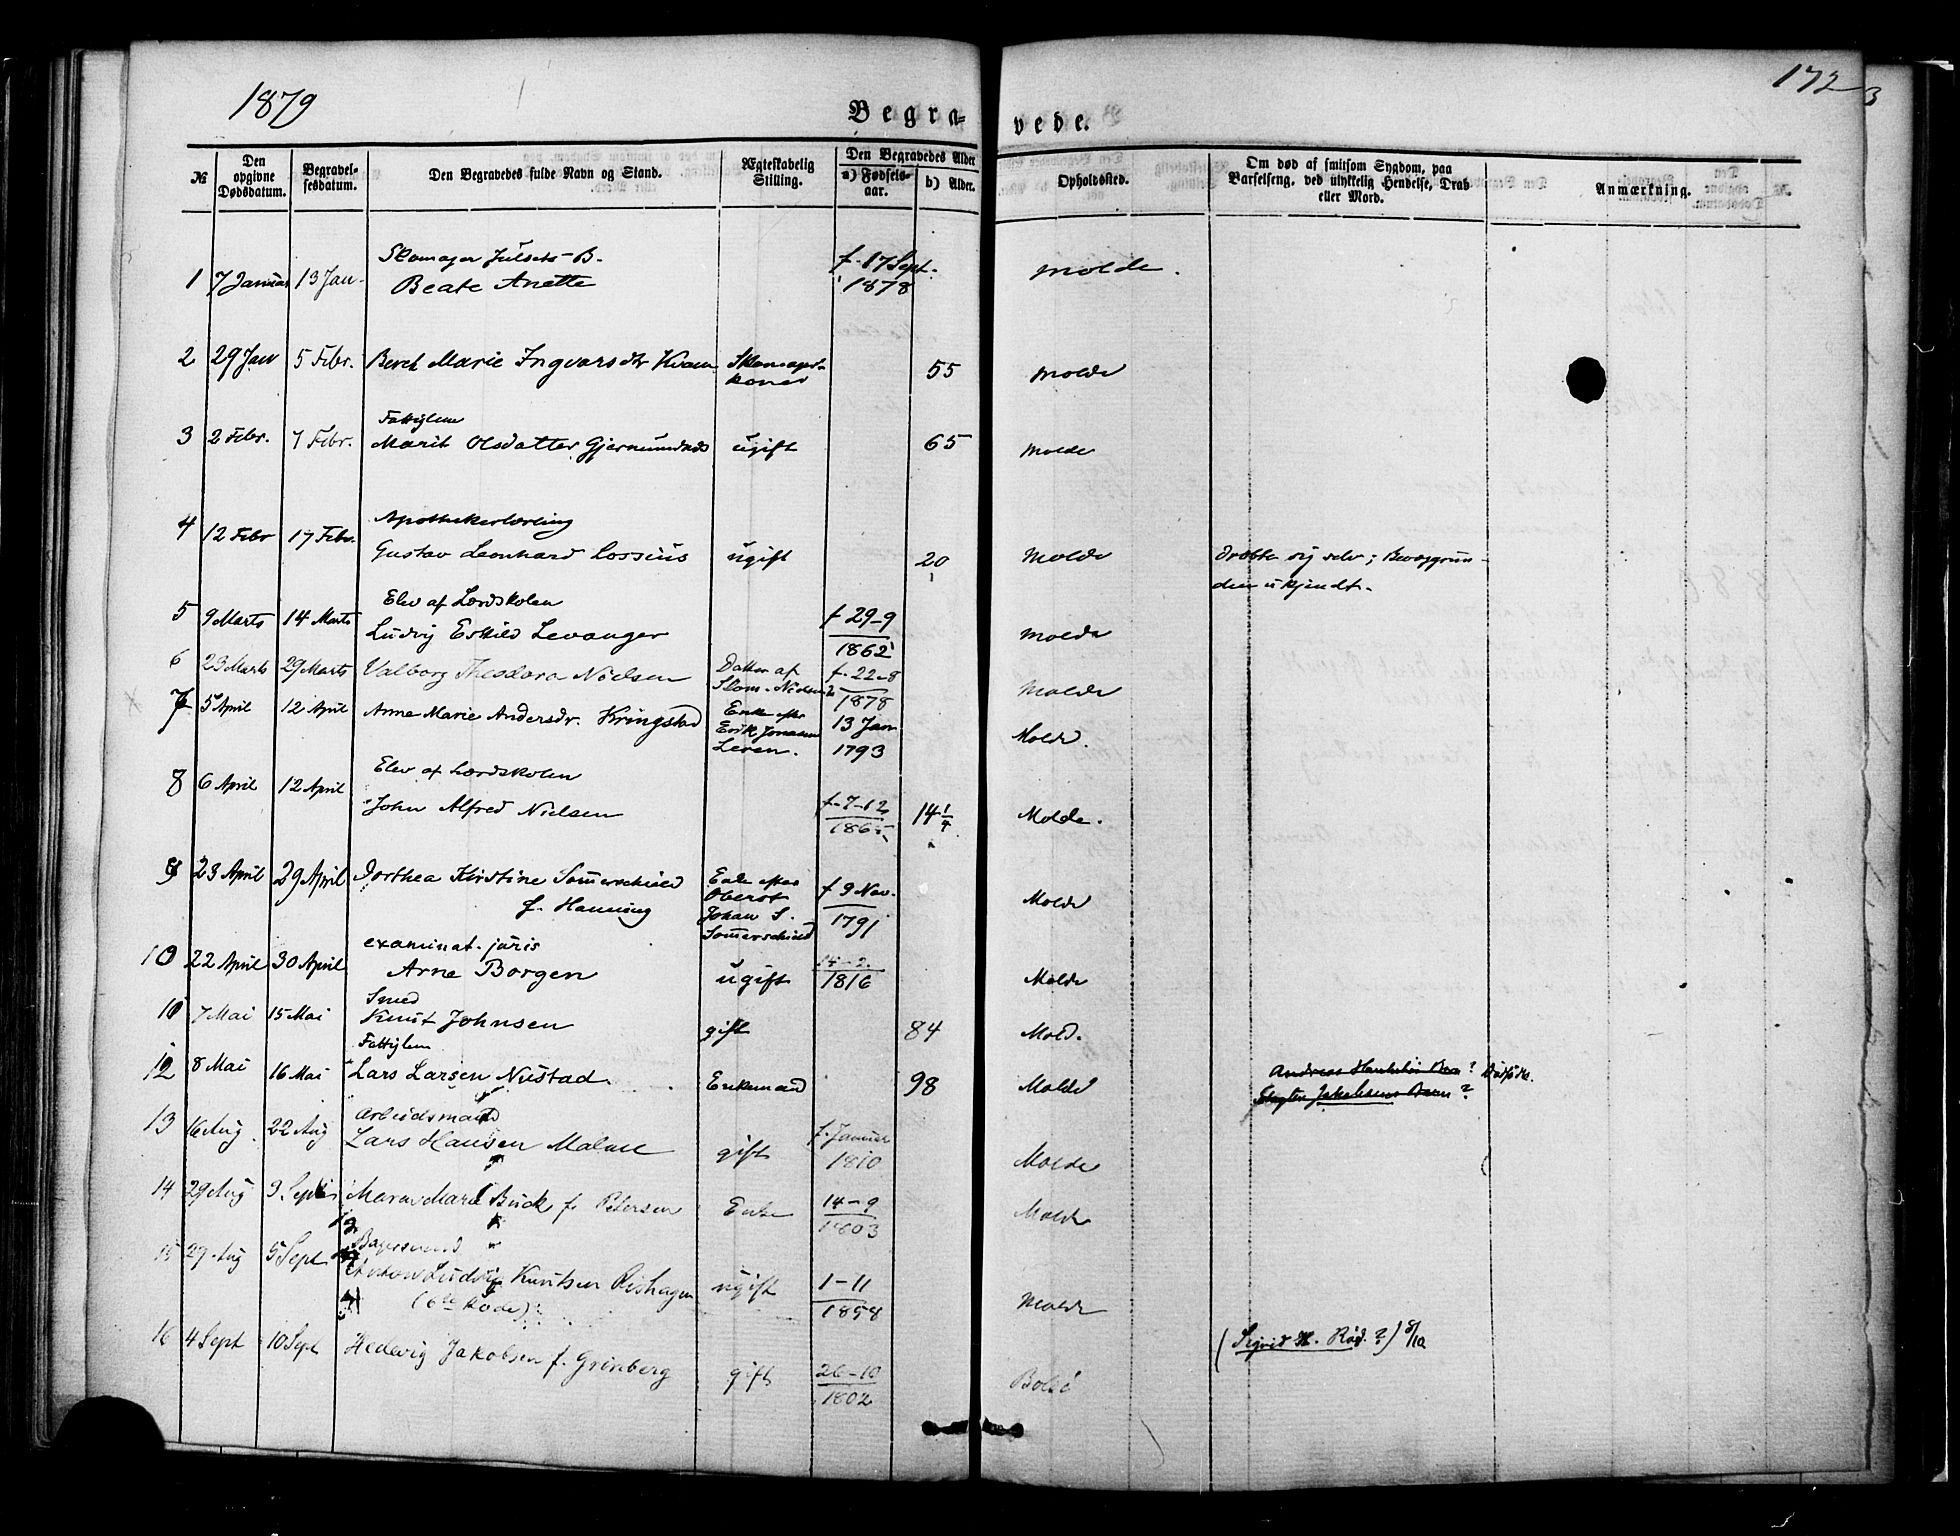 1879
172
3
Begra- vede.
№
Den opgivne Dødsdatum.
Begravel- sesdatum.
Den Begravedes fulde Navn og Stand.
Ægteskabelig Stilling.
Den Begravedes Alder
a) Fødsels- aar.
b) Alder.
Opholdssted.
Om død af smitsom Sygdom, paa Barselseng, ved ulykkelig Hendelse, Drab eller Mord.
Anmærkning.
Skomager Julsets B.
1 7 Januar 13 Jan. Beate Anette f. 17 Sept. 1878 Molde.
2 29 Jan 5 Febr. Beret Marie Ingvarsdtr Kvam Skomager- kones 55 Molde
Fattiglem
3 2 Febr. 7 Febr. Marit Olsdatter Gjermundnæs ugift 65 Molde
Apothekerlærling
4 12 Febr 17 Febr. Gustav Leonhard Lossius ugift 20 Molde dræbte sig selv; Bevæggrun-
den ukjendt.
Elev af Lærdskolen
5 9 Marts 14 Marts Ludvig Eskild Levanger f 29-9 1862 Molde
6 23 Marts 29 Marts Valborg Theodora Nielsen Datter af Nielsen f. 22-8 1878 Molde
7 5 April 12 April Anne Marie Andersdr. Kringstad Enke efter Erik Jonassen 13 Jan 1793 Molde.
Elev af Lærdskolen
8 6 April 12 April John Alfred Nielsen f. 7-12 186 14 1/4 Molde.
9 23 April 29 April Dorthea Kirstine Somerschield Enke efter Oberst Johan S. Somerschield f 9 Nov. 1791 Molde
f. Hanning
examinat. juris
10 22 April 30 April Arne Borgen ugift 14-2. 1816 Molde
Smed
7 Mai 15 Mai Knut Johnsen gift 84 Mold.
Fattiglem
12 8 Mai 16 Mai Lars Larsen Nustad. Enkemand 98 Molde
Andreas Barn? Dødfødte.
Jakobsens Barn?
Arbeidsmand
13 16 Aug 22 Aug Lars Hansen Malme gift f. Januar 1810 Molde
14 29 Aug 3 Sept Maren Marie Buck f. Petersen Enke 14-9 1803 Molde
Bagersvend
15 29 Aug 5 Sept Anton Ludvig Knutsen Rishagen ugift 1-11 1858 Molde
(6te Rode)
16 4 Sept 10 Sept Hedevig Jakobsen f. Grünberg gift 26-10 1802 Bolsø
(Sigrid H. Rød?) 8/10